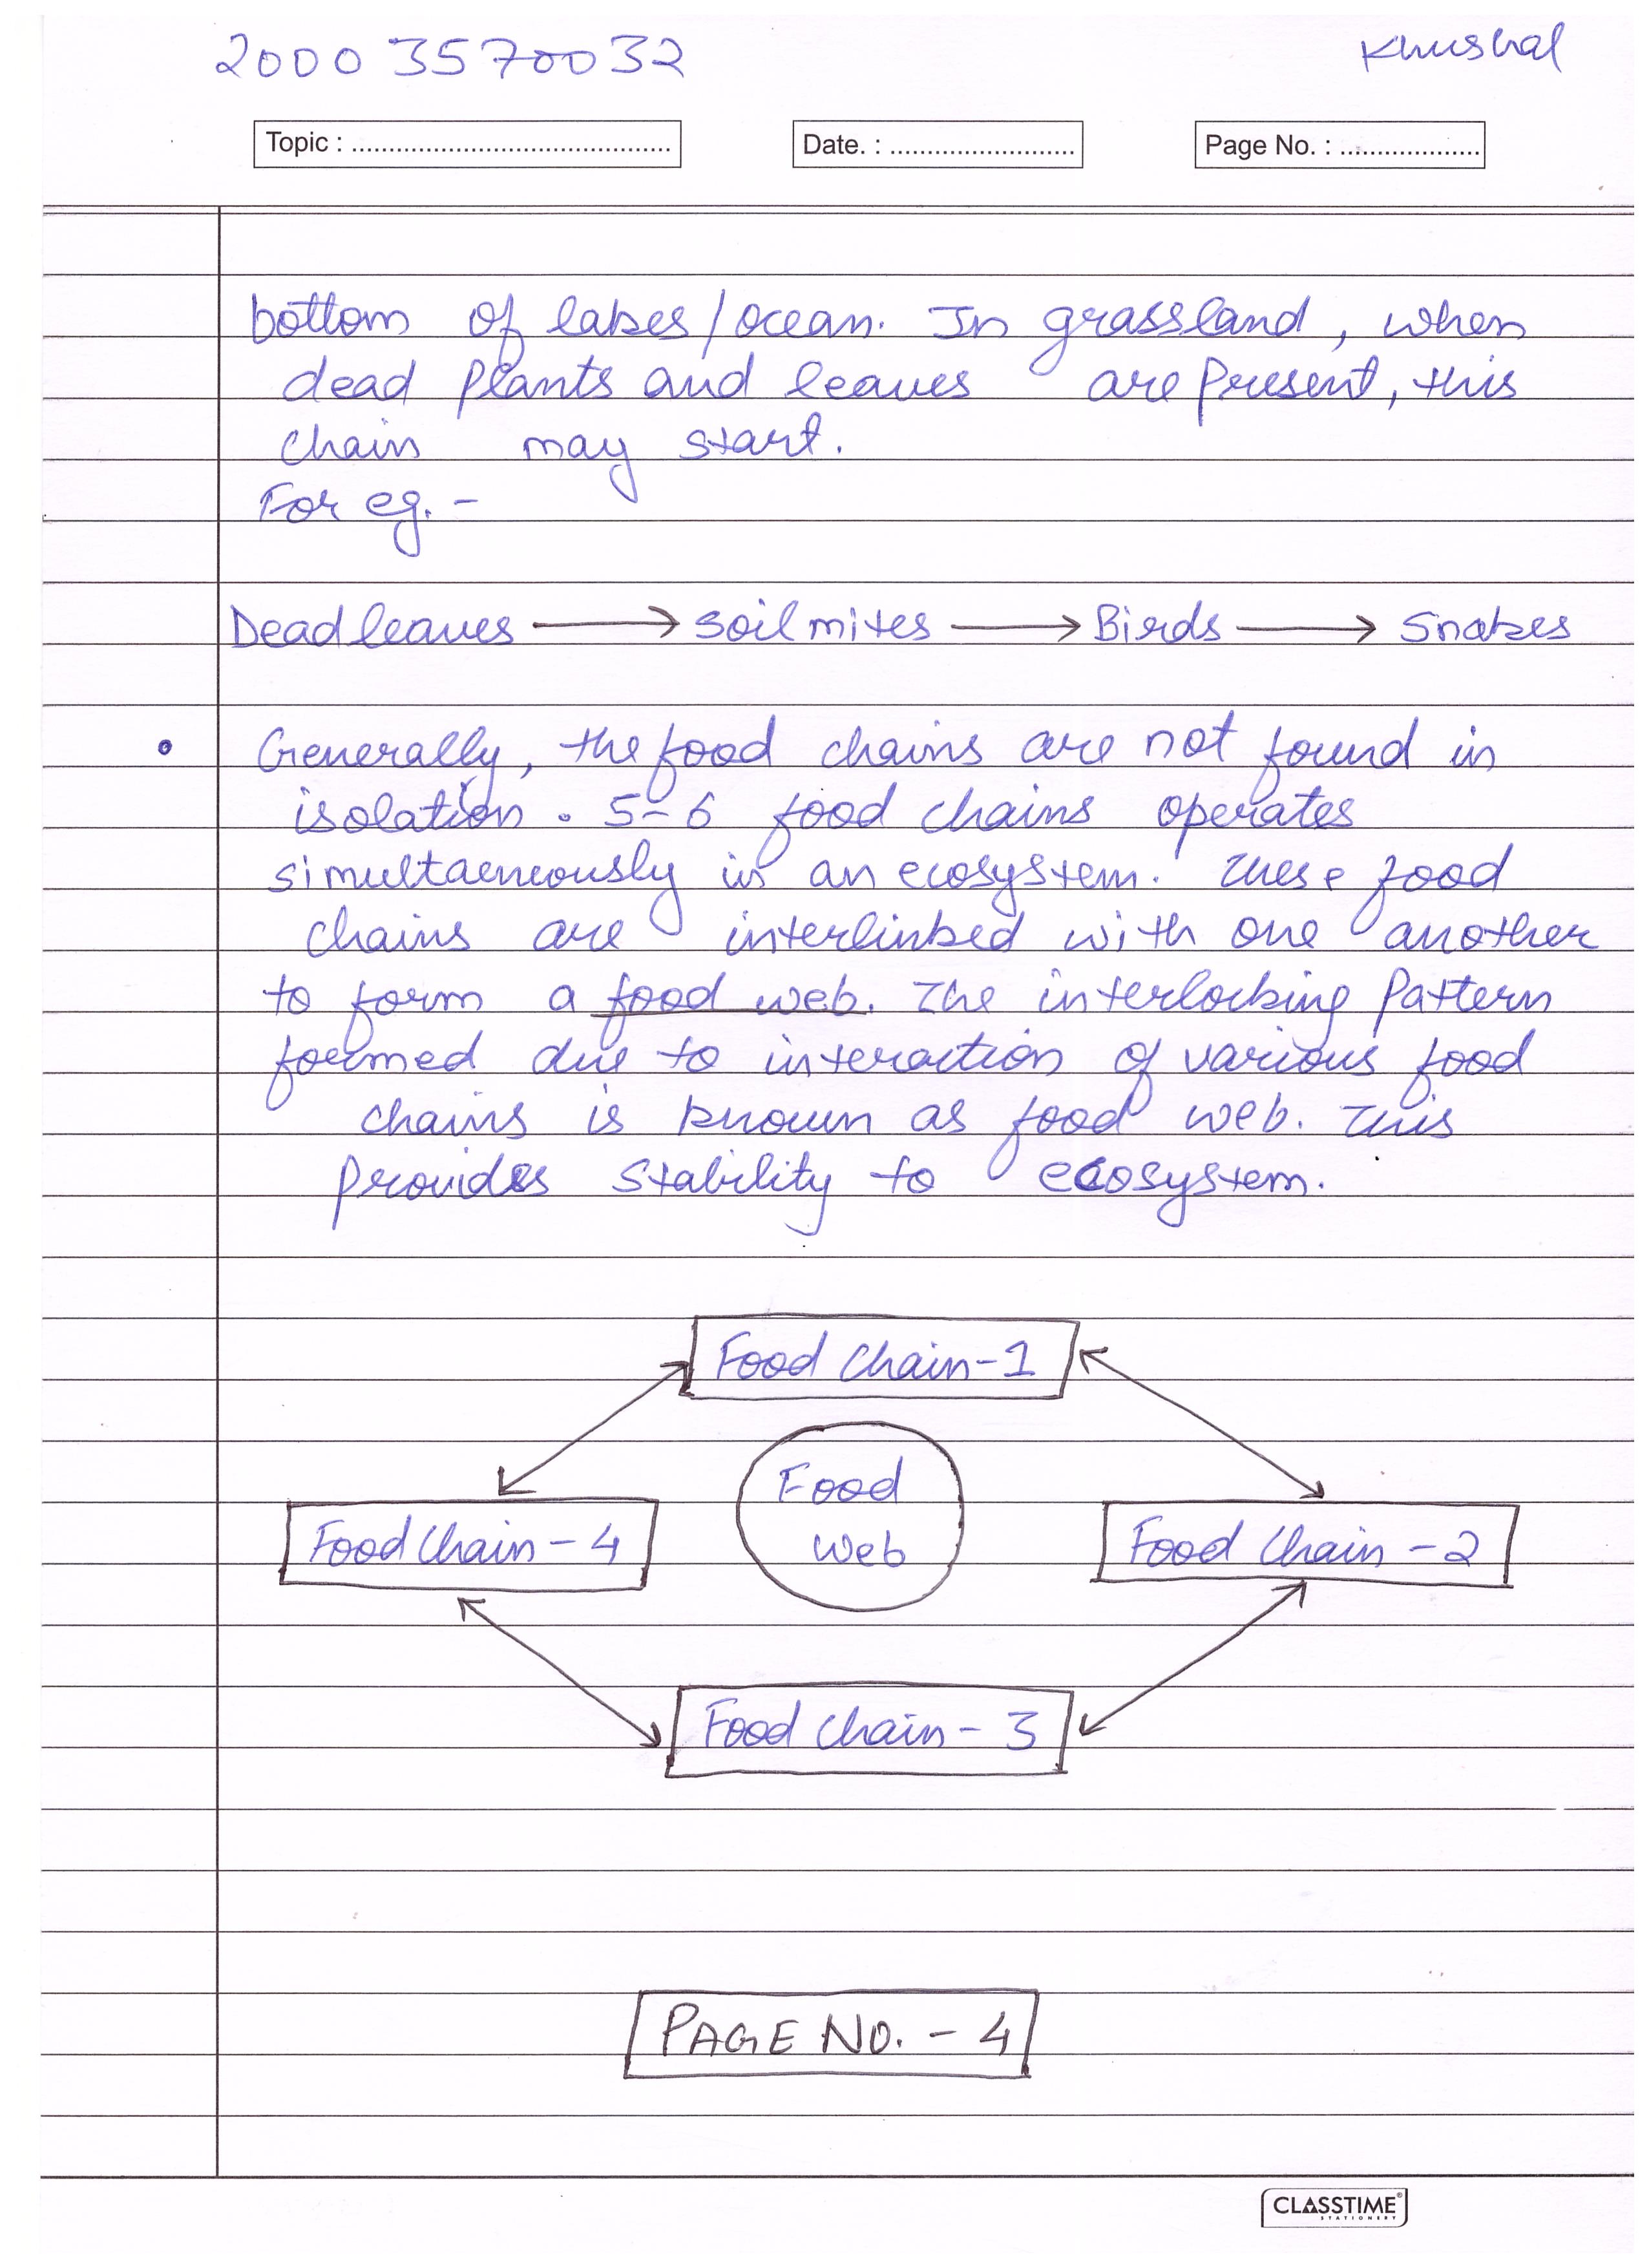 20003570032 Khushal
Topic : ........................................... Date. : ......................... Page No. : ...................
bottom of lakes/ocean. In grassland, when
dead plants and leaves are present, this
chain may start.
For eg. -
Dead leaves → soil mites → Birds → Snakes
• Generally, the food chains are not found in
isolation. 5-6 food chains operates
simultaeneously in an ecosystem. These food
chains are interlinked with one another
to form a food web. The interlocking pattern
formed due to interaction of various food
chains is known as food web. This
provides stability to ecosystem.
Food Chain-1
Food
Web
Food Chain - 4 Food Chain - 2
Food Chain - 3
PAGE NO. - 4
CLASSTIME®
STATIONERY